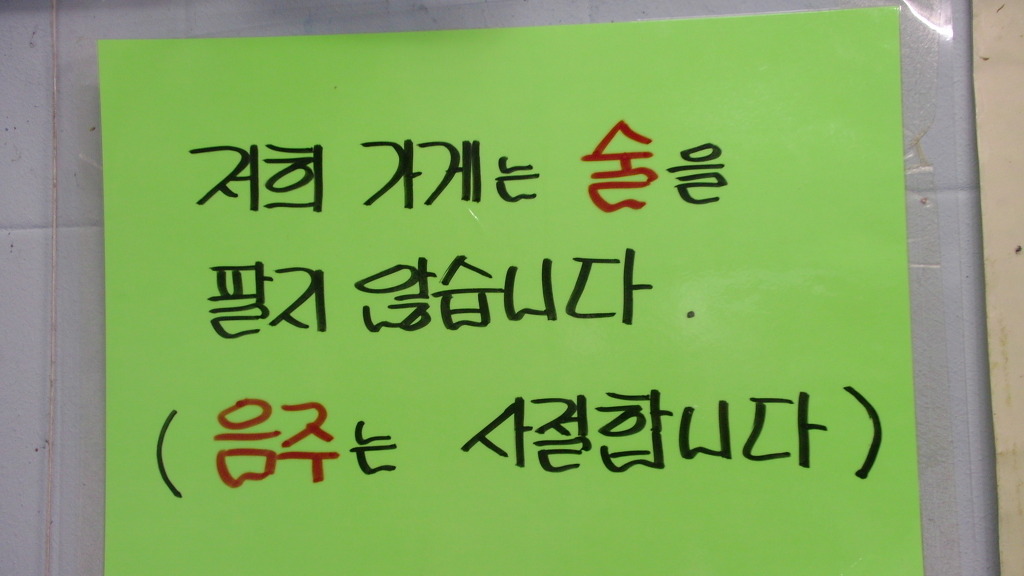 저희 가게는 술을
팔지 않습니다.
(음주는 사절합니다)